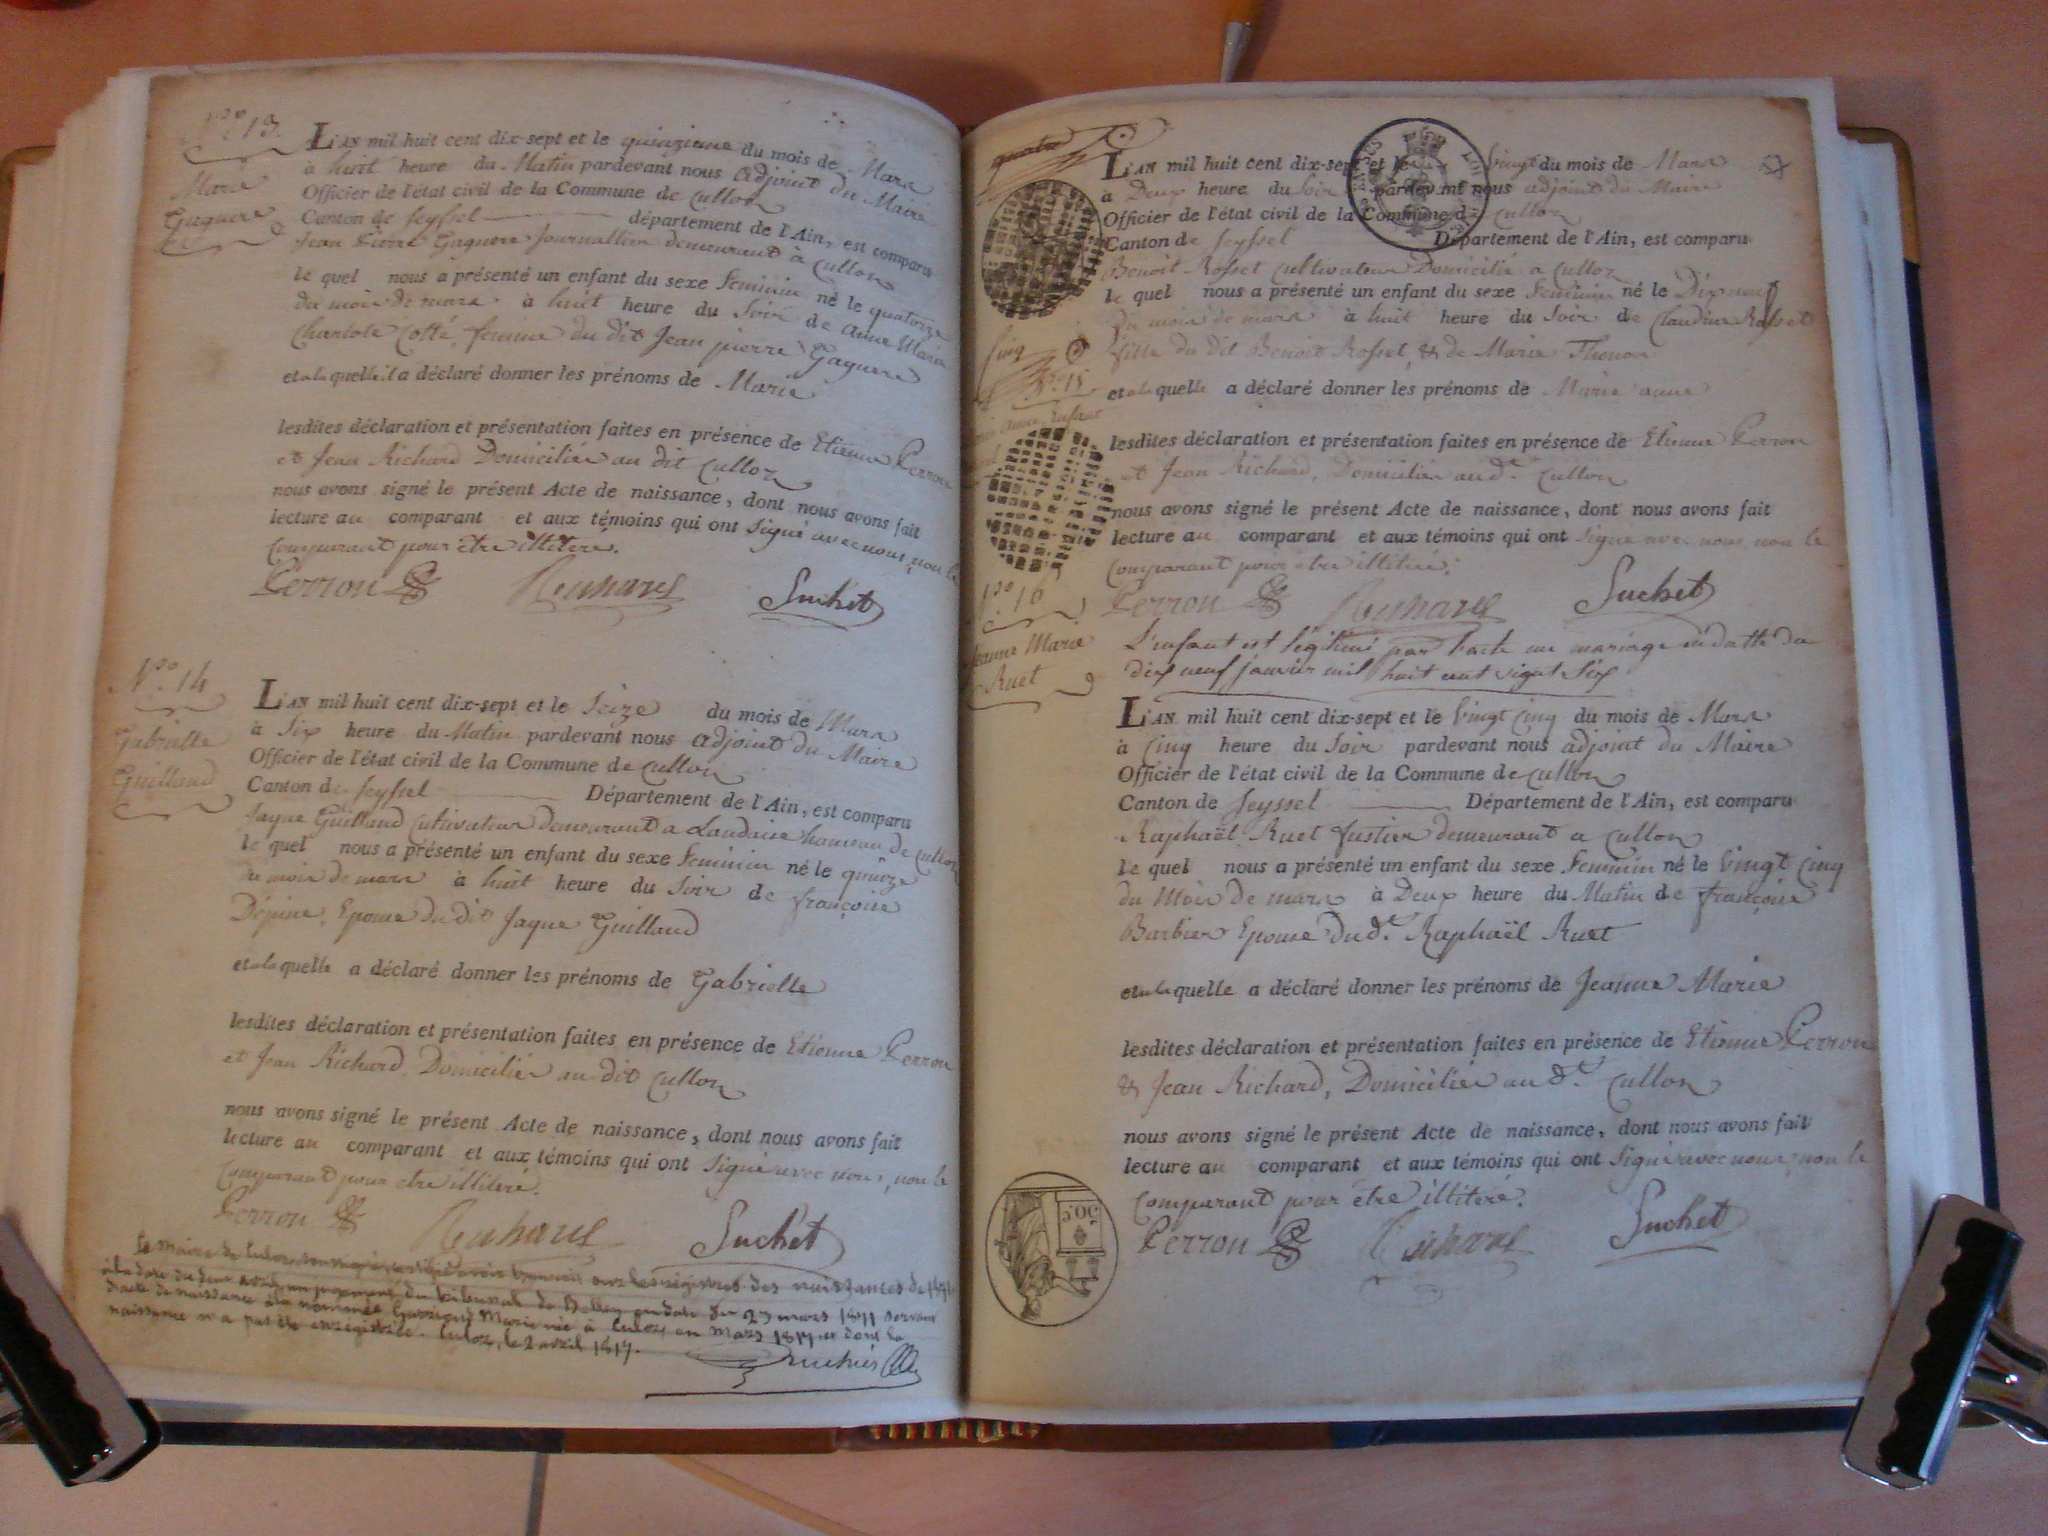 N.o 13.
Marie
Gaguere
L'AN mil huit cent dix-sept et le quinzieme du mois de Mars
à huit heure du Matin pardevant nous adjoint du Maire
Officier de l'état civil de la Commune de Culloz
Canton de Seyssel département de l'Ain, est comparu
Jean Pierre Gaguere Journallier demeurant à Culloz
le quel nous a présenté un enfant du sexe Feminin né le quatorze
du mois de mars à huit heure du Soir de Anne Marie
Charlote Cotté femme du dit Jean pierre Gaguere
et a la quelle il a déclaré donner les prénoms de Marie
lesdites déclaration et présentation faites en présence de Etienne Perron
et Jean Richard Domiciliés au dit Culloz
nous avons signé le présent Acte de naissance, dont nous avons fait
lecture au comparant et aux témoins qui ont Signé avec nous, non le
Comparant pour être illitéré.
Perron Richard Suchet
N.o 14
Gabrielle
Guilland
L'AN mil huit cent dix-sept et le Seize du mois de Mars
à Six heure du Matin pardevant nous adjoint du Maire
Officier de l'état civil de la Commune de Culloz
Canton de Seyssel Département de l'Ain, est comparu
Jaque Guilland Cultivateur demeurant a Landaise hameau de Culloz
le quel nous a présenté un enfant du sexe Feminin né le quinze
du mois de mars à huit heure du Soir de françoise
Dépine, Epouse du dit Jaque Guilland
et a la quelle a déclaré donner les prénoms de Gabrielle
lesdites déclaration et présentation faites en présence de Etienne Perron
et Jean Richard, Domiciliés au dit Culloz
nous avons signé le présent Acte de naissance, dont nous avons fait
lecture au comparant et aux témoins qui ont Signé avec nous, non le
Comparant pour etre illitéré.
Perron Richard Suchet
Le Maire de Culoz, sur les régistres des naissances de
à la date du deux avril, un jugement du tribunal de Belley en date du 27 mars servant
d'acte de naissance à la nommée Marie née à Culoz en Mars 1817 et dont la
naissance n'a pas été enregistrée. Culoz, le 2 avril
quatre
L'AN mil huit cent dix-sept et le Vingt du mois de Mars
à Deux heure du Soir pardevant nous adjoint du Maire
Officier de l'état civil de la Commune de Culloz
Canton de Seyssel Département de l'Ain, est comparu
Benoit Rosset Cultivateur Domicilié a Culloz
le quel nous a présenté un enfant du sexe Feminin né le Dix neuf
du mois de mars à huit heure du Soir de Claudine Rosset
fille du Dit Benoit Rosset & de Marie Thenon
et a la quelle a déclaré donner les prénoms de Marie anne
cinq
N.o 15
lesdites déclaration et présentation faites en présence de Etienne Perron
et Jean Richard, Domiciliés au d.t Culloz
nous avons signé le présent Acte de naissance, dont nous avons fait
lecture au comparant et aux témoins qui ont Signé avec nous non le
Comparant pour etre illitéré.
Perron Richard Suchet
L'enfant est légitimé par l'acte de mariage en datte du
dix neuf janvier mil huit cent vingt Six
N.o 16
Jeanne Marie
Ruet
L'AN mil huit cent dix-sept et le Vingt Cinq du mois de Mars
à Cinq heure du Soir pardevant nous adjoint du Maire
Officier de l'état civil de la Commune de Culloz
Canton de Seyssel Département de l'Ain, est comparu
Raphaël Ruet fustier demeurant a Culloz
le quel nous a présenté un enfant du sexe Feminin né le Vingt Cinq
du Mois de mars à Deux heure du Matin de françoise
Barbier Epouse du d.t Raphaël Ruet
et a la quelle a déclaré donner les prénoms de Jeanne Marie
lesdites déclaration et présentation faites en présence de Etienne Perron
& Jean Richard, Domiciliés au d.t Culloz
nous avons signé le présent Acte de naissance, dont nous avons fait
lecture au comparant et aux témoins qui ont Signé avec nous, non le
Comparant pour être illitéré.
Perron Richard Suchet
50 c